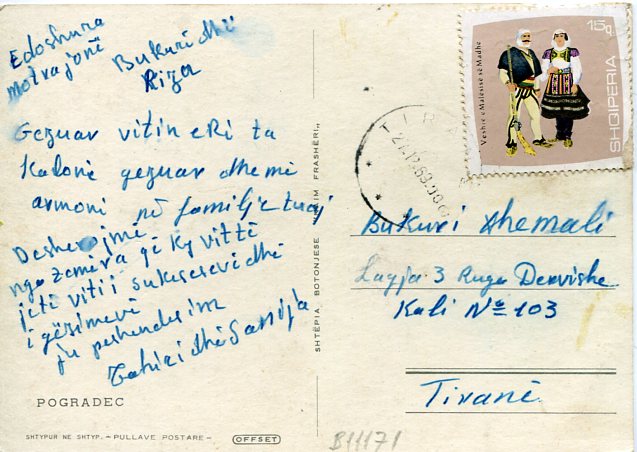 Edoshura
motra jonë
Bukuri dhe
Riza
Gezuar vitin eRi ta
Kaloni gezuar dhe me
armoni në familje tuaj
Desherojme
nga zemera qe Ky vit të
jeti vit i suksesevi dhe
i gëzimeve
ju peshendesim
Tahiri dhe Sanija
POGRADEC
SHTYPUR NE SHTYP. – PULLAVE POSTARE –
OFFSET
SHTËPIA BOTONJESE „NAIM FRASHËRI„
15q
Veshje e Malësisë së Madhe
SHQIPERIA
TIRA
Bukuri Xhemali
Lagja 3 Ruga Dervishe
Kali Nº 103
Tiranë
B11171